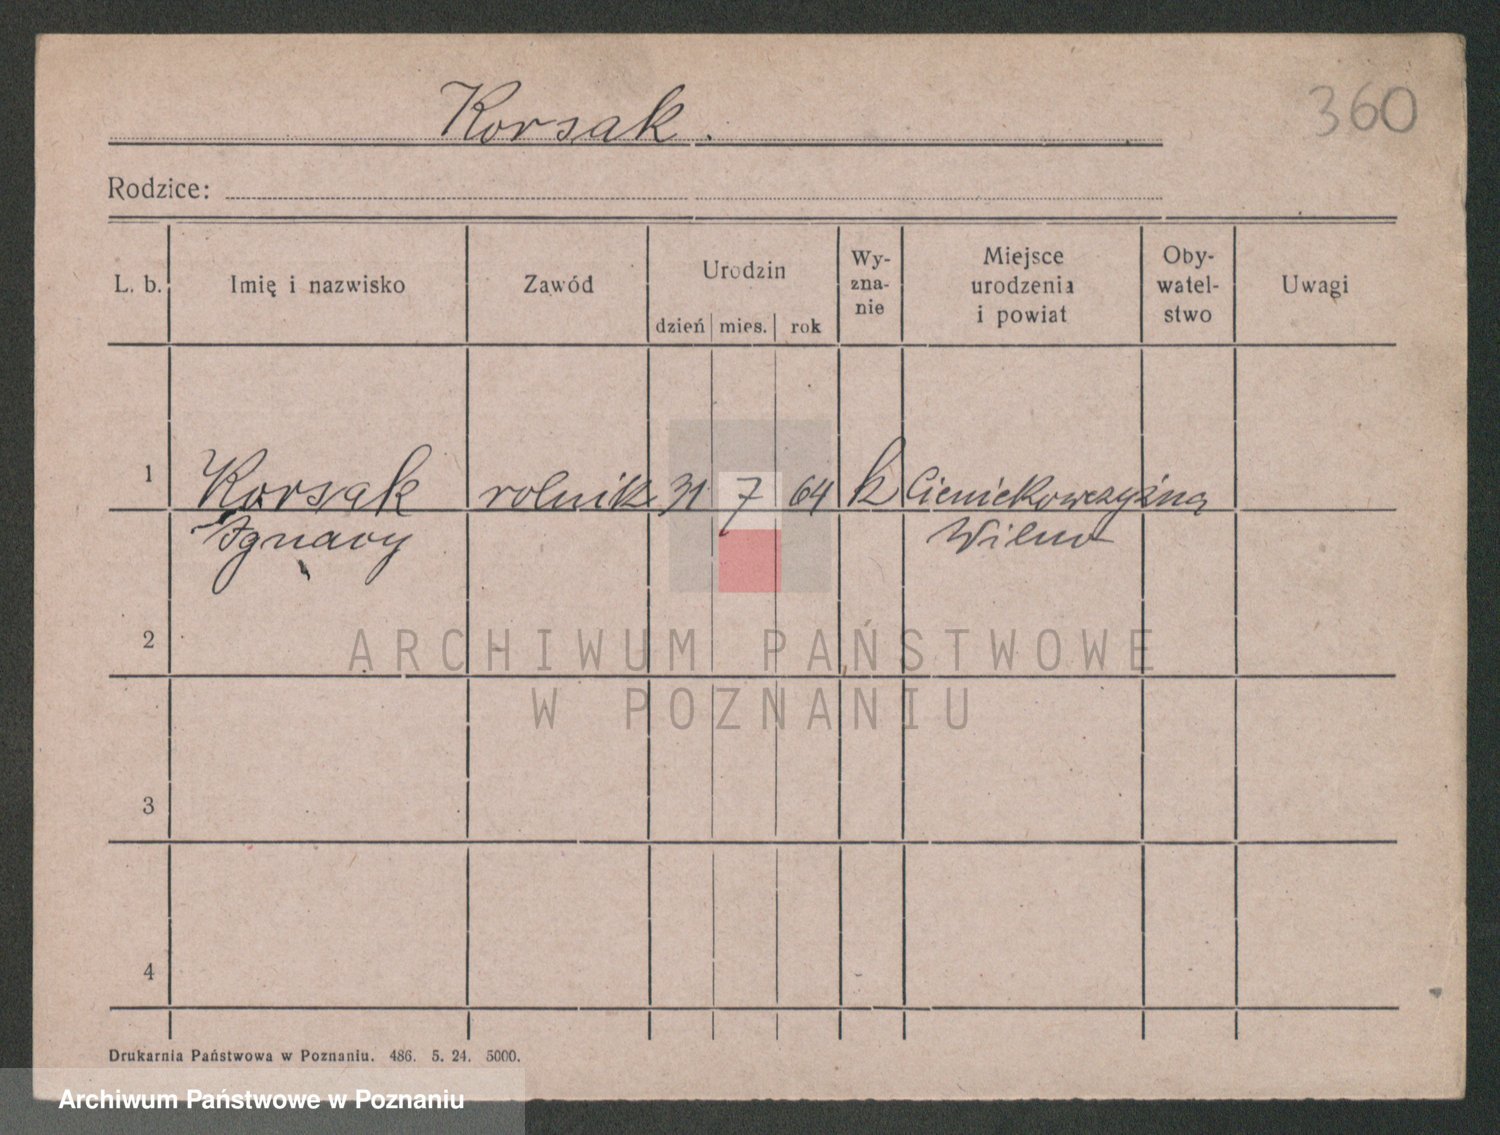 Korsak.
360
Rodzice:
L. b.
Imię i nazwisko
Zawód
Urodzin
dzień
mies.
rok
Wy-
zna-
nie
Miejsce
urodzenia
i powiat
Oby-
watel-
stwo
Uwagi
1
Korsak
Ignacy
rolnik
31
7
64
k
Wilno
2
3
4
ARCHIWUM PAŃSTWOWE
W POZNANIU
Drukarnia Państwowa w Poznaniu. 486. 5. 24. 5000.
Archiwum Państwowe w Poznaniu